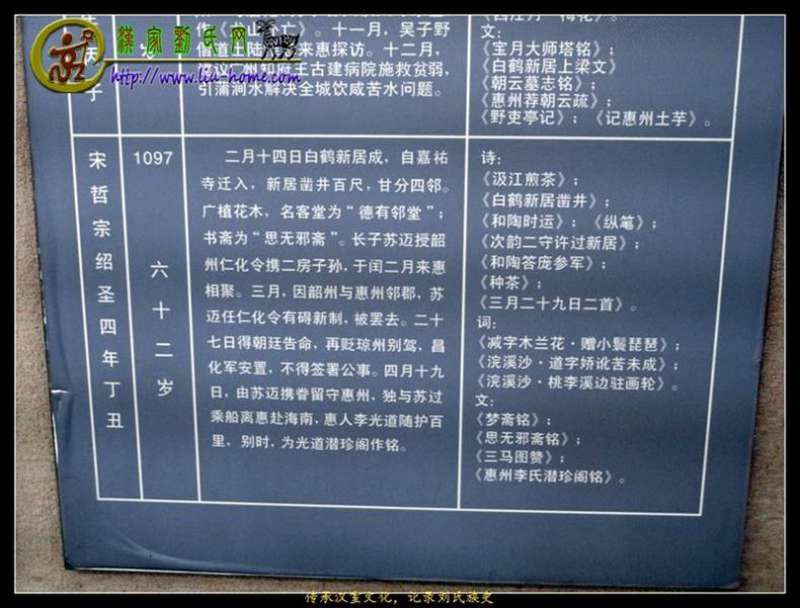 漢家劉氏网
http://www.liu-home.com
子
作《
亡》。十一月，吴子野
陆
来惠探访。十二月，
议广州知府王古建病院施救贫弱，
引蒲涧水解决全城饮咸苦水问题。
文：
《宝月大师塔铭》；
《白鹤新居上梁文》
《朝云墓志铭》；
《惠州荐朝云疏》；
《野吏亭记》；《记惠州土芋》。
宋哲宗绍圣四年丁丑
1097
六十二岁
二月十四日白鹤新居成，自嘉祐
寺迁入，新居凿井百尺，甘分四邻。
广植花木，名客堂为“德有邻堂”；
书斋为“思无邪斋”。长子苏迈授韶
州仁化令携二房子孙，于闰二月来惠
相聚。三月，因韶州与惠州邻郡，苏
迈任仁化令有碍新制，被罢去。二十
七日得朝廷告命，再贬琼州别驾，昌
化军安置，不得签署公事。四月十九
日，由苏迈携眷留守惠州，独与苏过
乘船离惠赴海南，惠人李光道随护百
里，别时，为光道潜珍阁作铭。
诗：
《汲江煎茶》；
《白鹤新居凿井》；
《和陶时运》；《纵笔》；
《次韵二守许过新居》；
《和陶答庞参军》；
《种茶》；
《三月二十九日二首》。
词：
《减字木兰花·赠小鬟琵琶》；
《浣溪沙·道字娇讹苦未成》；
《浣溪沙·桃李溪边驻画轮》。
文：
《梦斋铭》；
《思无邪斋铭》；
《三马图赞》；
《惠州李氏潜珍阁铭》。
传承汉室文化，记录刘氏族史